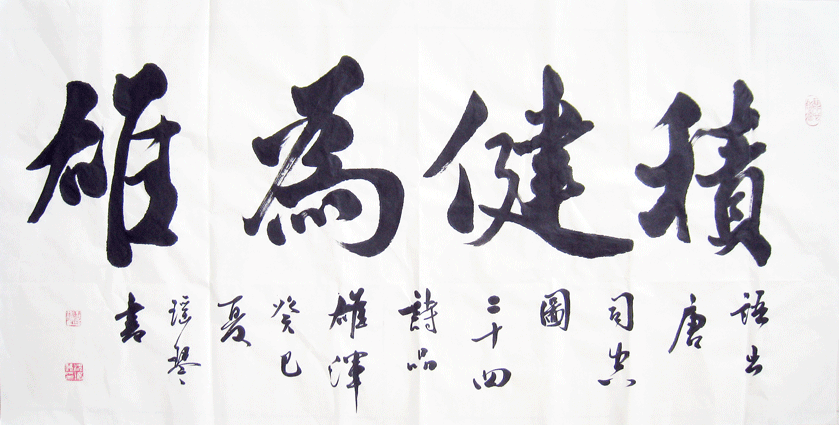 積健為雄
語出
唐
司空
圖
二十四
詩品
雄渾
癸巳
夏
瑶琴
書